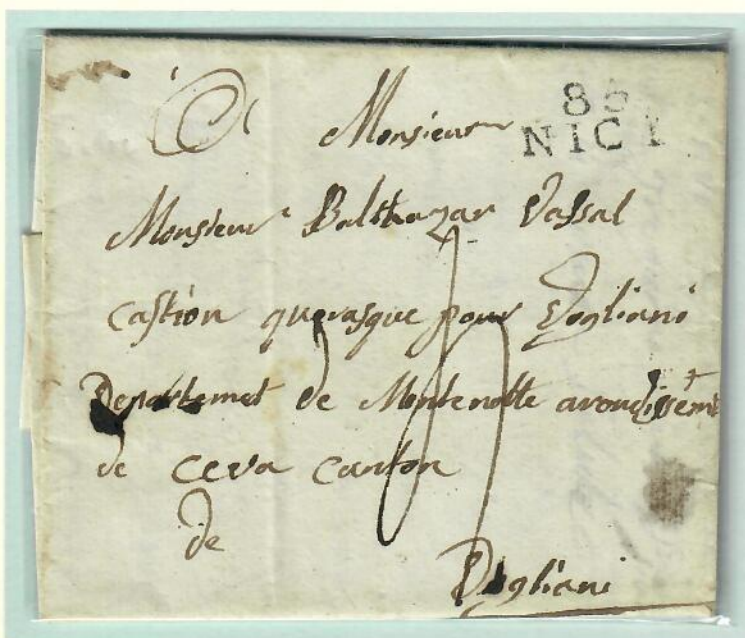 85
NICE
A Monsieur
Monsieur Balthazar Vassal
Castion querasque pour Dogliani
Departemet de Montenotte arondissemt
de Ceva Canton
de
Dogliani